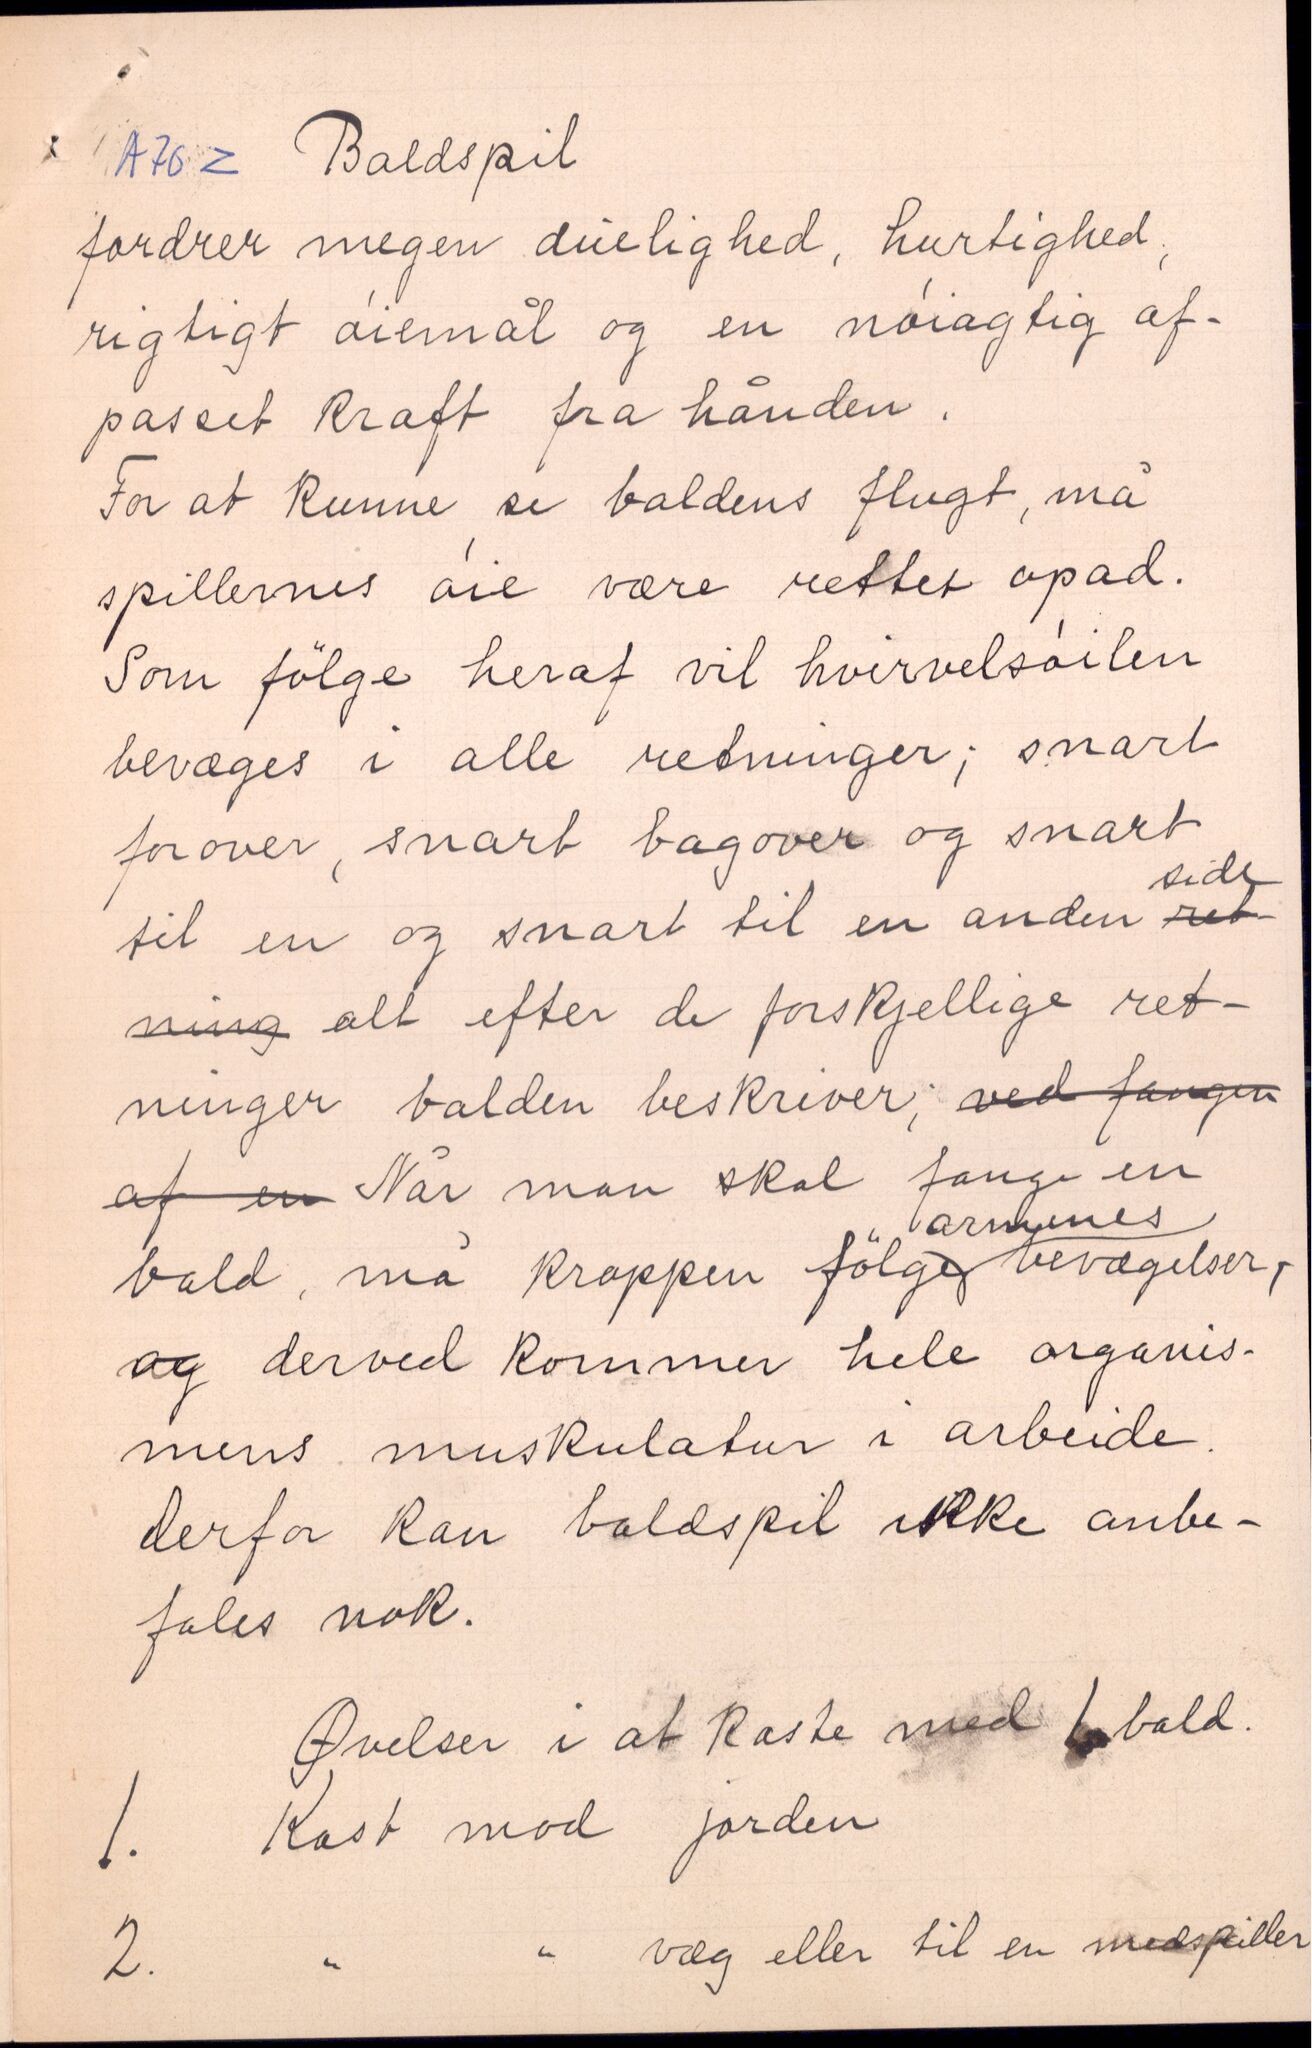 A70 Z Baldspil
fordrer megen duelighed, hurtighed,
rigtigt óiemål og en nóiagtig af-
passet kraft fra hånden.
For at kunne se baldens flugt, må
spillernes óie være rettet opad.
Som fölge heraf vil hvirvelsóilen
bevæges i alle retninger; snart
forover, snart bagover og snart
side
til en og snart til en anden ret
ning alt efter de forskjellige ret-
ninger balden beskriver; ved fangen
af en Når man skal fange en
armenes
bald, må kroppen fölge bevægelser,
og derved kommer hele organis-
mens muskulatur i arbeide.
derfor kan baldspil ikke anbe-
fales nok.
Øvelser i at kaste med 1 bald.
1. Kast mod jorden
2. " " væg eller til en medspiller